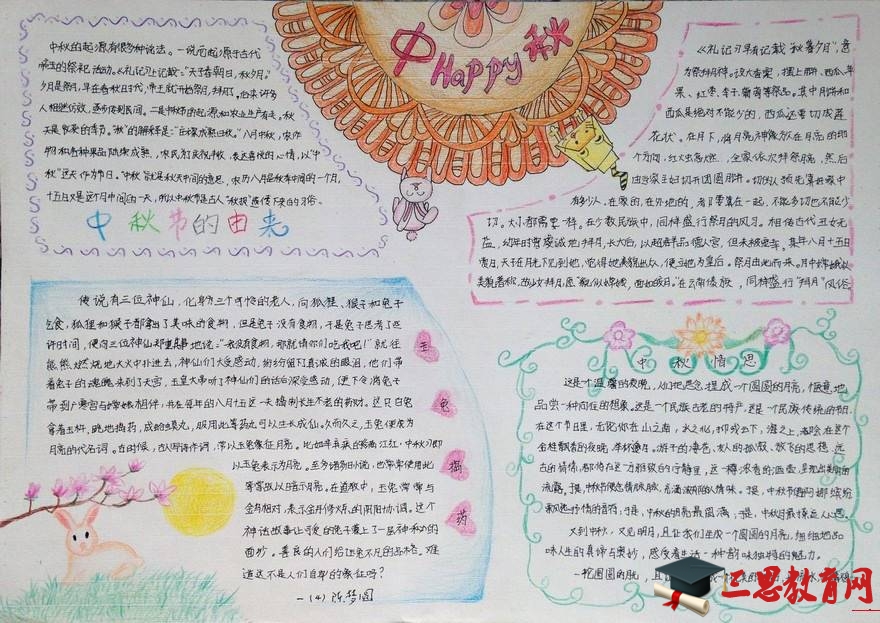 中 Happy 秋
中秋的起源有很多种说法。一说它起源于古代
帝王的祭祀活动。《礼记》上记载："天子春朝日，秋夕月。"
夕月是祭月，早在春秋时代，帝王就开始祭月、拜月了。后来许多
人相继仿效，逐步传到民间。二是中秋的起源和农业生产有关。秋
天是收获的季节。"秋"的解释是："庄稼成熟曰秋。"八月中秋，农作
物和各种果品陆续成熟，农民为庆祝丰收，表达喜悦的心情，以"中
秋"这天作为节日。"中秋"就是秋天中间的意思，农历八月是秋季中间的一个月，
十五日又是这个月中间的一天，所以中秋节是古人"秋报"遗传下来的习俗。
中秋节的由来
《礼记》早有记载"秋暮夕月"，意
为祭拜月神。设大香案，摆上月饼、西瓜、苹
果、红枣、李子、葡萄等祭品。其中月饼和
西瓜是绝对不能少的，西瓜还要切成莲
花状。在月下，将月亮神像放在月亮的那
个方向，红火烛高燃，全家依次拜祭月亮，然后
由当家主妇切开团圆月饼。切的人预先算好家中
有多少人，在家的，在外地的，都要算在一起，不能多切也不能少
切。大小都需要一样。在少数民族中，同样盛行祭月的风习。相传古代丑女无
盐，幼年时曾虔诚地拜月，长大后，以超群品德入宫，但未被宠幸。某年八月十五日
赏月，天子在月光下见到她，觉得她美貌出众，便立她为皇后。祭月由此而来。月中嫦娥以
美貌著称，故少女拜月，愿"貌似嫦娥，面如皓月"。在云南傣族，同样盛行"拜月"风俗
传说有三位神仙，化身为三个可怜的老人，向狐狸、猴子和兔子
乞食，狐狸和猴子都拿出了美味的食物，但是兔子没有食物，于是兔子思考了些
许时间，便向三位神仙郑重其事地说："我没有食物，那就请你们吃我吧！"就往
熊熊燃烧地大火中扑进去，神仙们大受感动，纷纷留下真诚的眼泪，他们带
着兔子的魂魄来到了天宫，玉皇大帝听了神仙们的话后深受感动，便下令将兔子
带到广寒宫与嫦娥相伴，并在每年的八月十五这一天捣制长生不老的药材。这只白兔
拿着玉杵，跪地捣药，成蛤蟆丸，服用此等药丸可以长生成仙。久而久之，玉兔便成为
月亮的代名词。古时候，古人写诗作词，常以玉兔象征月亮。
以玉兔表示为月亮。至多诸种旧小说，也常常使用此
等写成以日暗示月亮。在道教中，玉兔常常与
金乌相对，表示金丹修大成的阴阳协调。这个
神话故事让可爱的兔子蒙上了一层神秘的
面纱。善良的人们给过兔不凡的品格，难
道这不是人们自身的象征吗？
一（4）陈梦圆
玉
兔
捣
药
中秋情思
这是个温馨的夜晚，人们把思念捏成一个圆圆的月亮，惬意地
品尝一种向往的想象。这是一个民族古老的特产，这是一个民族传统的节日。
在这个节日里，无论你在山之南，水之北，抑或天下，海之上，都会在这个
金桂飘香的夜晚，举杯邀月。游子的凄苍，友人的孤寂，放飞的思想，远
古的情愫，都将在这一方雅致的宁静里，
流露。于是，中秋节便含情脉脉，充满浓郁的人情味。
于是，中秋的月亮最圆满；于是，中秋月最惊近人心思。
又到中秋，又见明月，且让我们生成一个圆圆的月亮，细细地品
味人生的真谛与奥妙，感受着生活一种韵味独特的魅力。
三思教育网